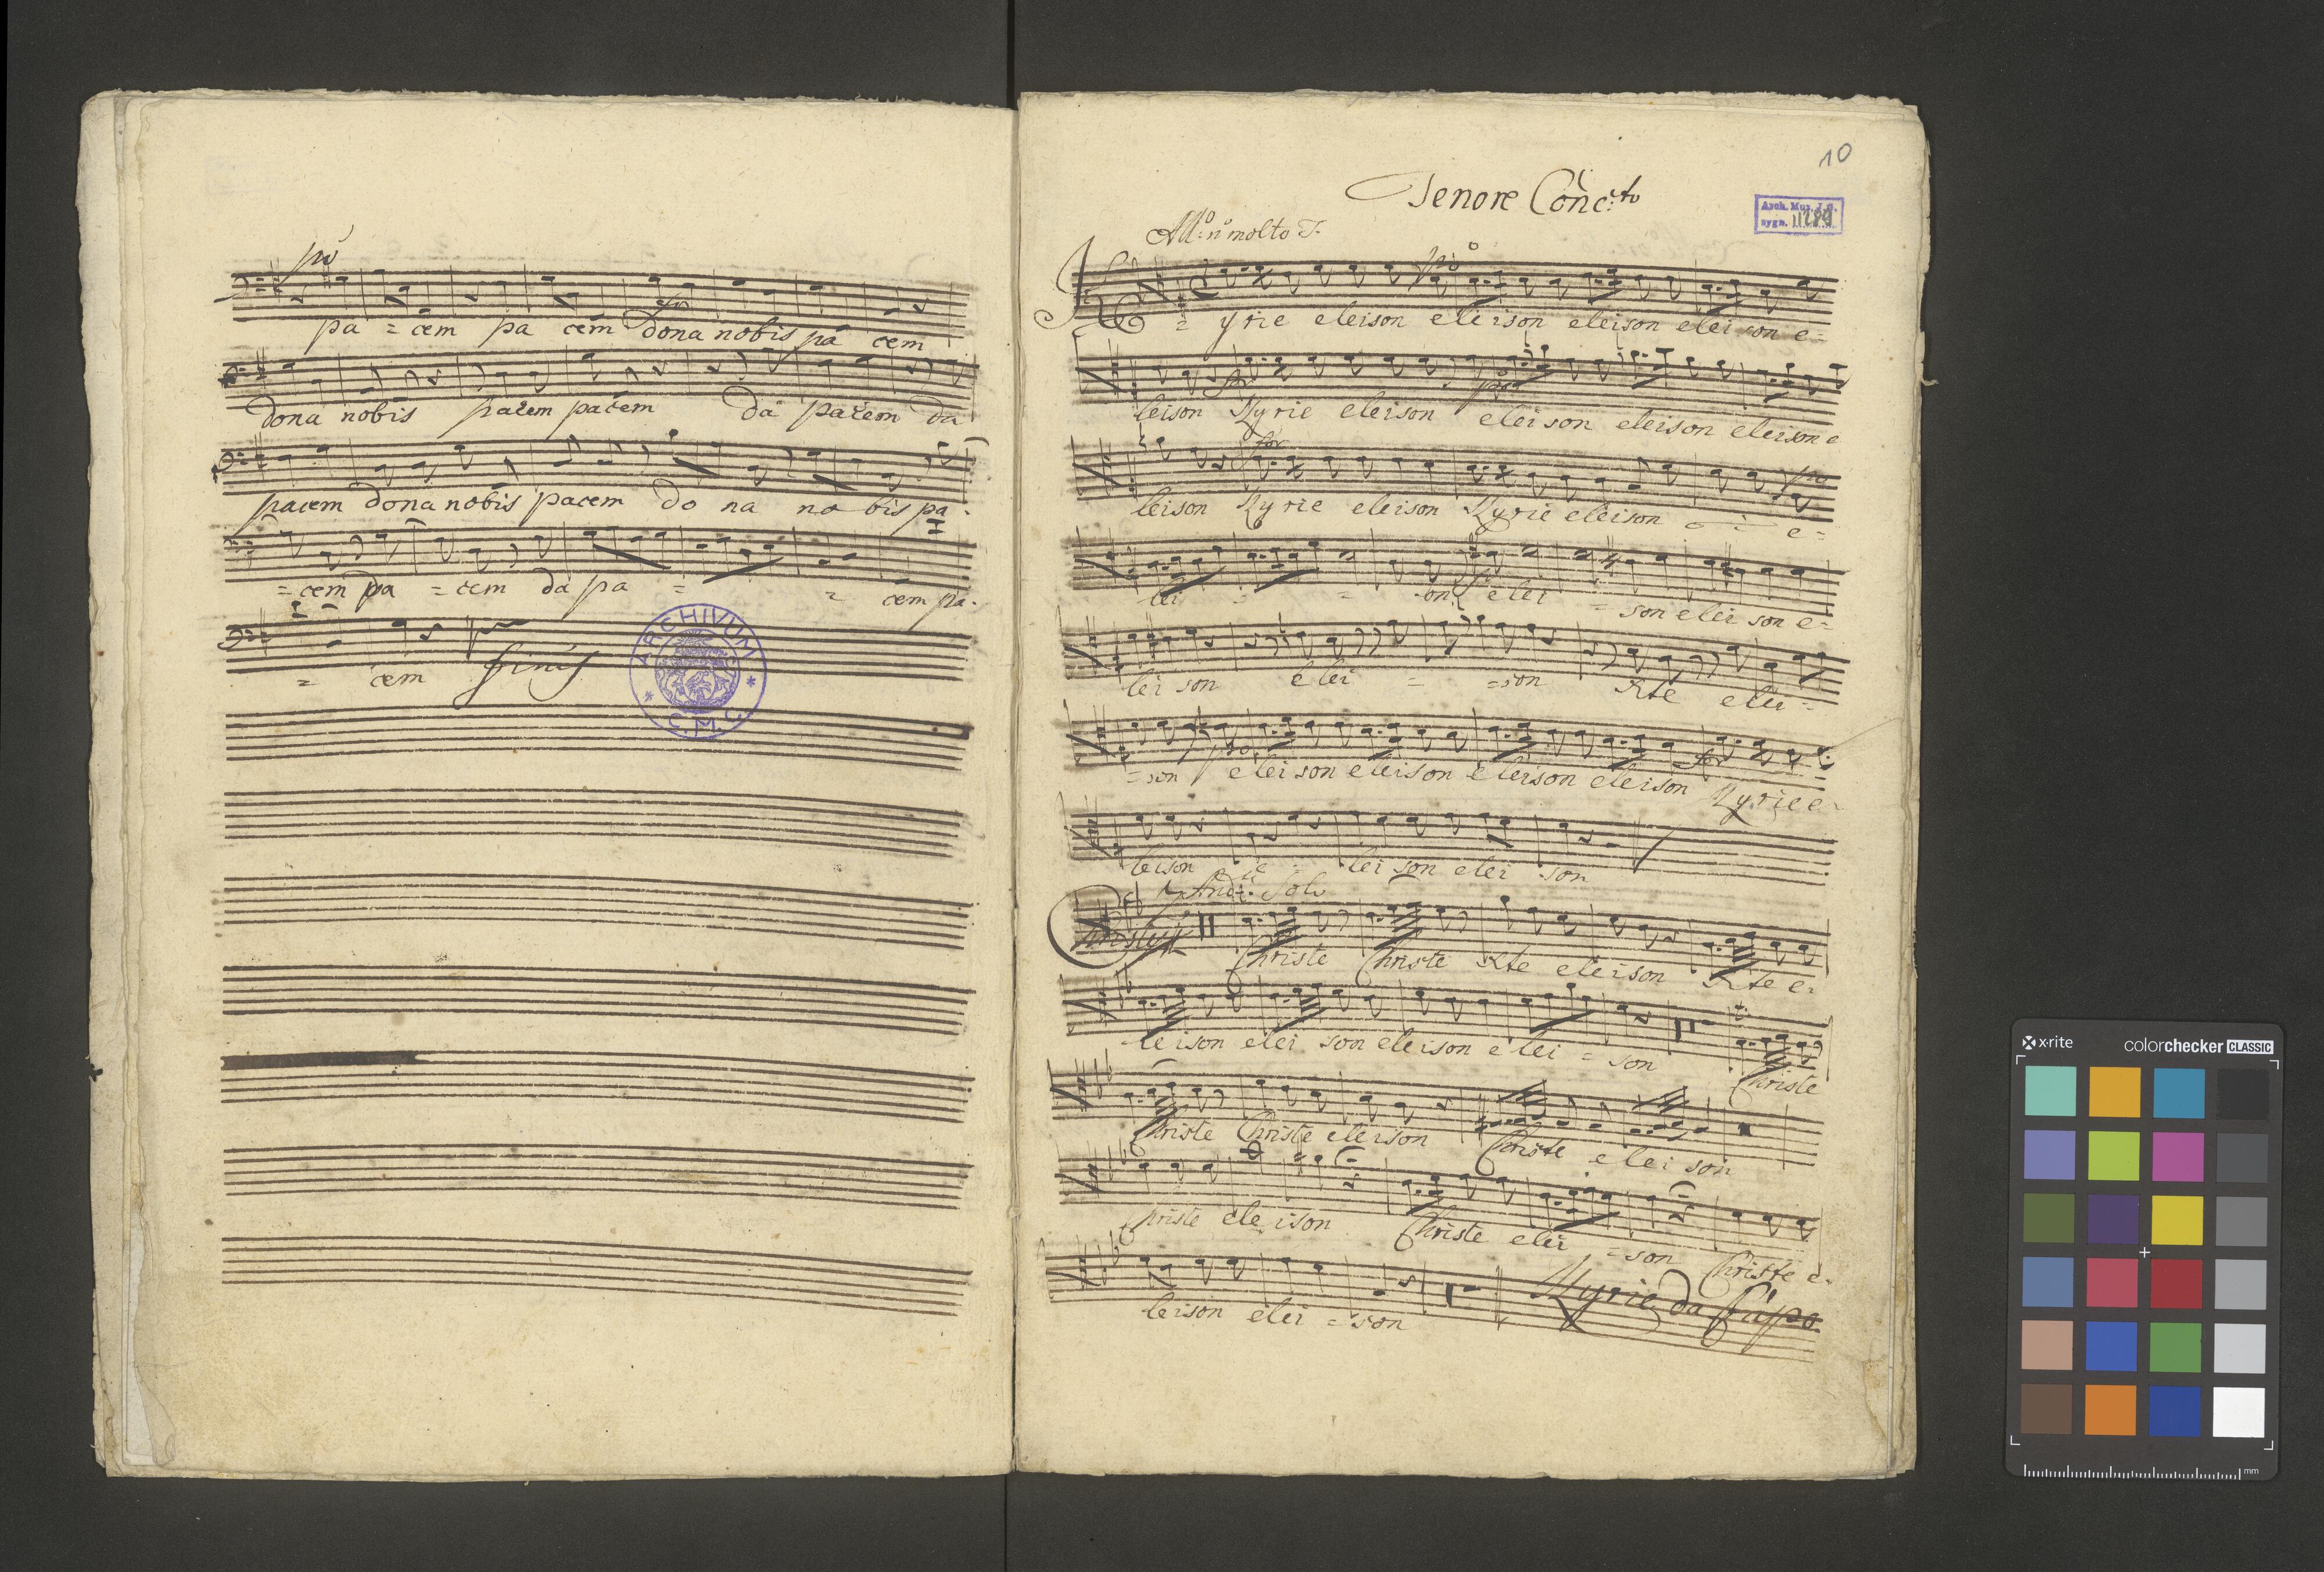 pio
pa = cem pa cem dona nobis pa cem
for
dona nobis pacem pacem da pacem da
pacem dona nobis pacem do na no bis pa-
= cem pa = cem da pa = = cem pa-
= cem finis
ARCHIVUM
* C.M.C. *
10
Tenore Conc:to
Arch. Muz. J.G.
sygn. II 289
All:o n molto T.
pio
K = yrie eleison eleison eleison eleison e=
leison Kyrie eleison eleison eleison eleison e
for
leison Kyrie eleison Kyrie eleison e=
lei = = on elei = son elei son e=
lei son elei = =son Xte elei =
= son eleison eleison eleison eleison Kyrie e=
for
leison e lei son elei son
And:te Solo
Christe Christe Christe Xte eleison Xte e=
leison elei son eleison elei = son Christe
Christe Christe eleison Christe elei son
Christe eleison Christe elei = son Christe e-
leison elei = son Kyrie da Capo
x-rite
colorchecker CLASSIC
mm